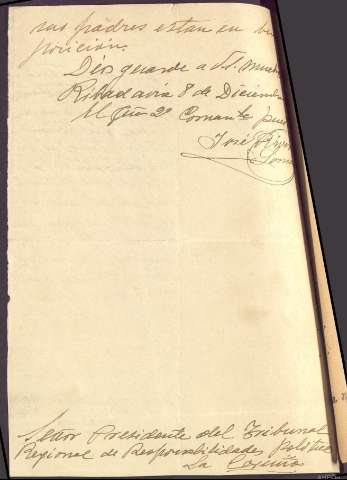 sus padres estan en bu
posición.
Dios guarde a Vd. much
Ribadavia 8 de Diciembr
El 2º Comante
José
Señor Presidente del Tribunal
Regional de Responsabilidades Polític
La Coruña